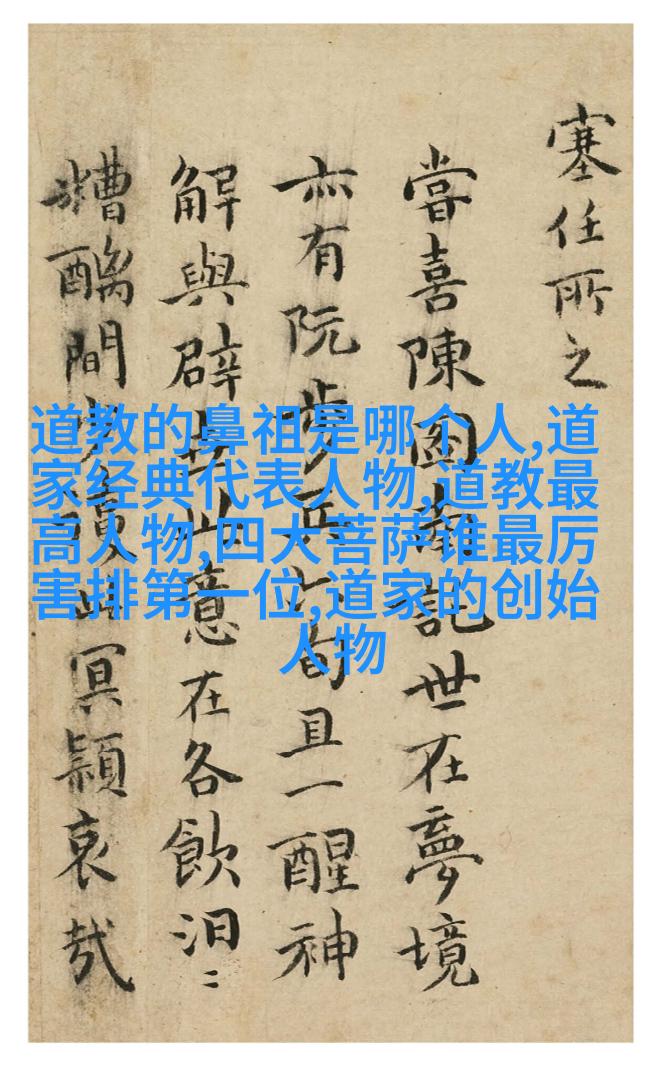 塞任所之
嘗喜陳圖南託世在夢境
亦有阮步兵旬且一醒神
解與辟世意在各飲汩〻
糟醨間冥穎哀哉
道教的鼻祖是哪个人,道
家经典代表人物,道教最
高人物,四大菩萨谁最厉
害排第一位,道家的创始
人物